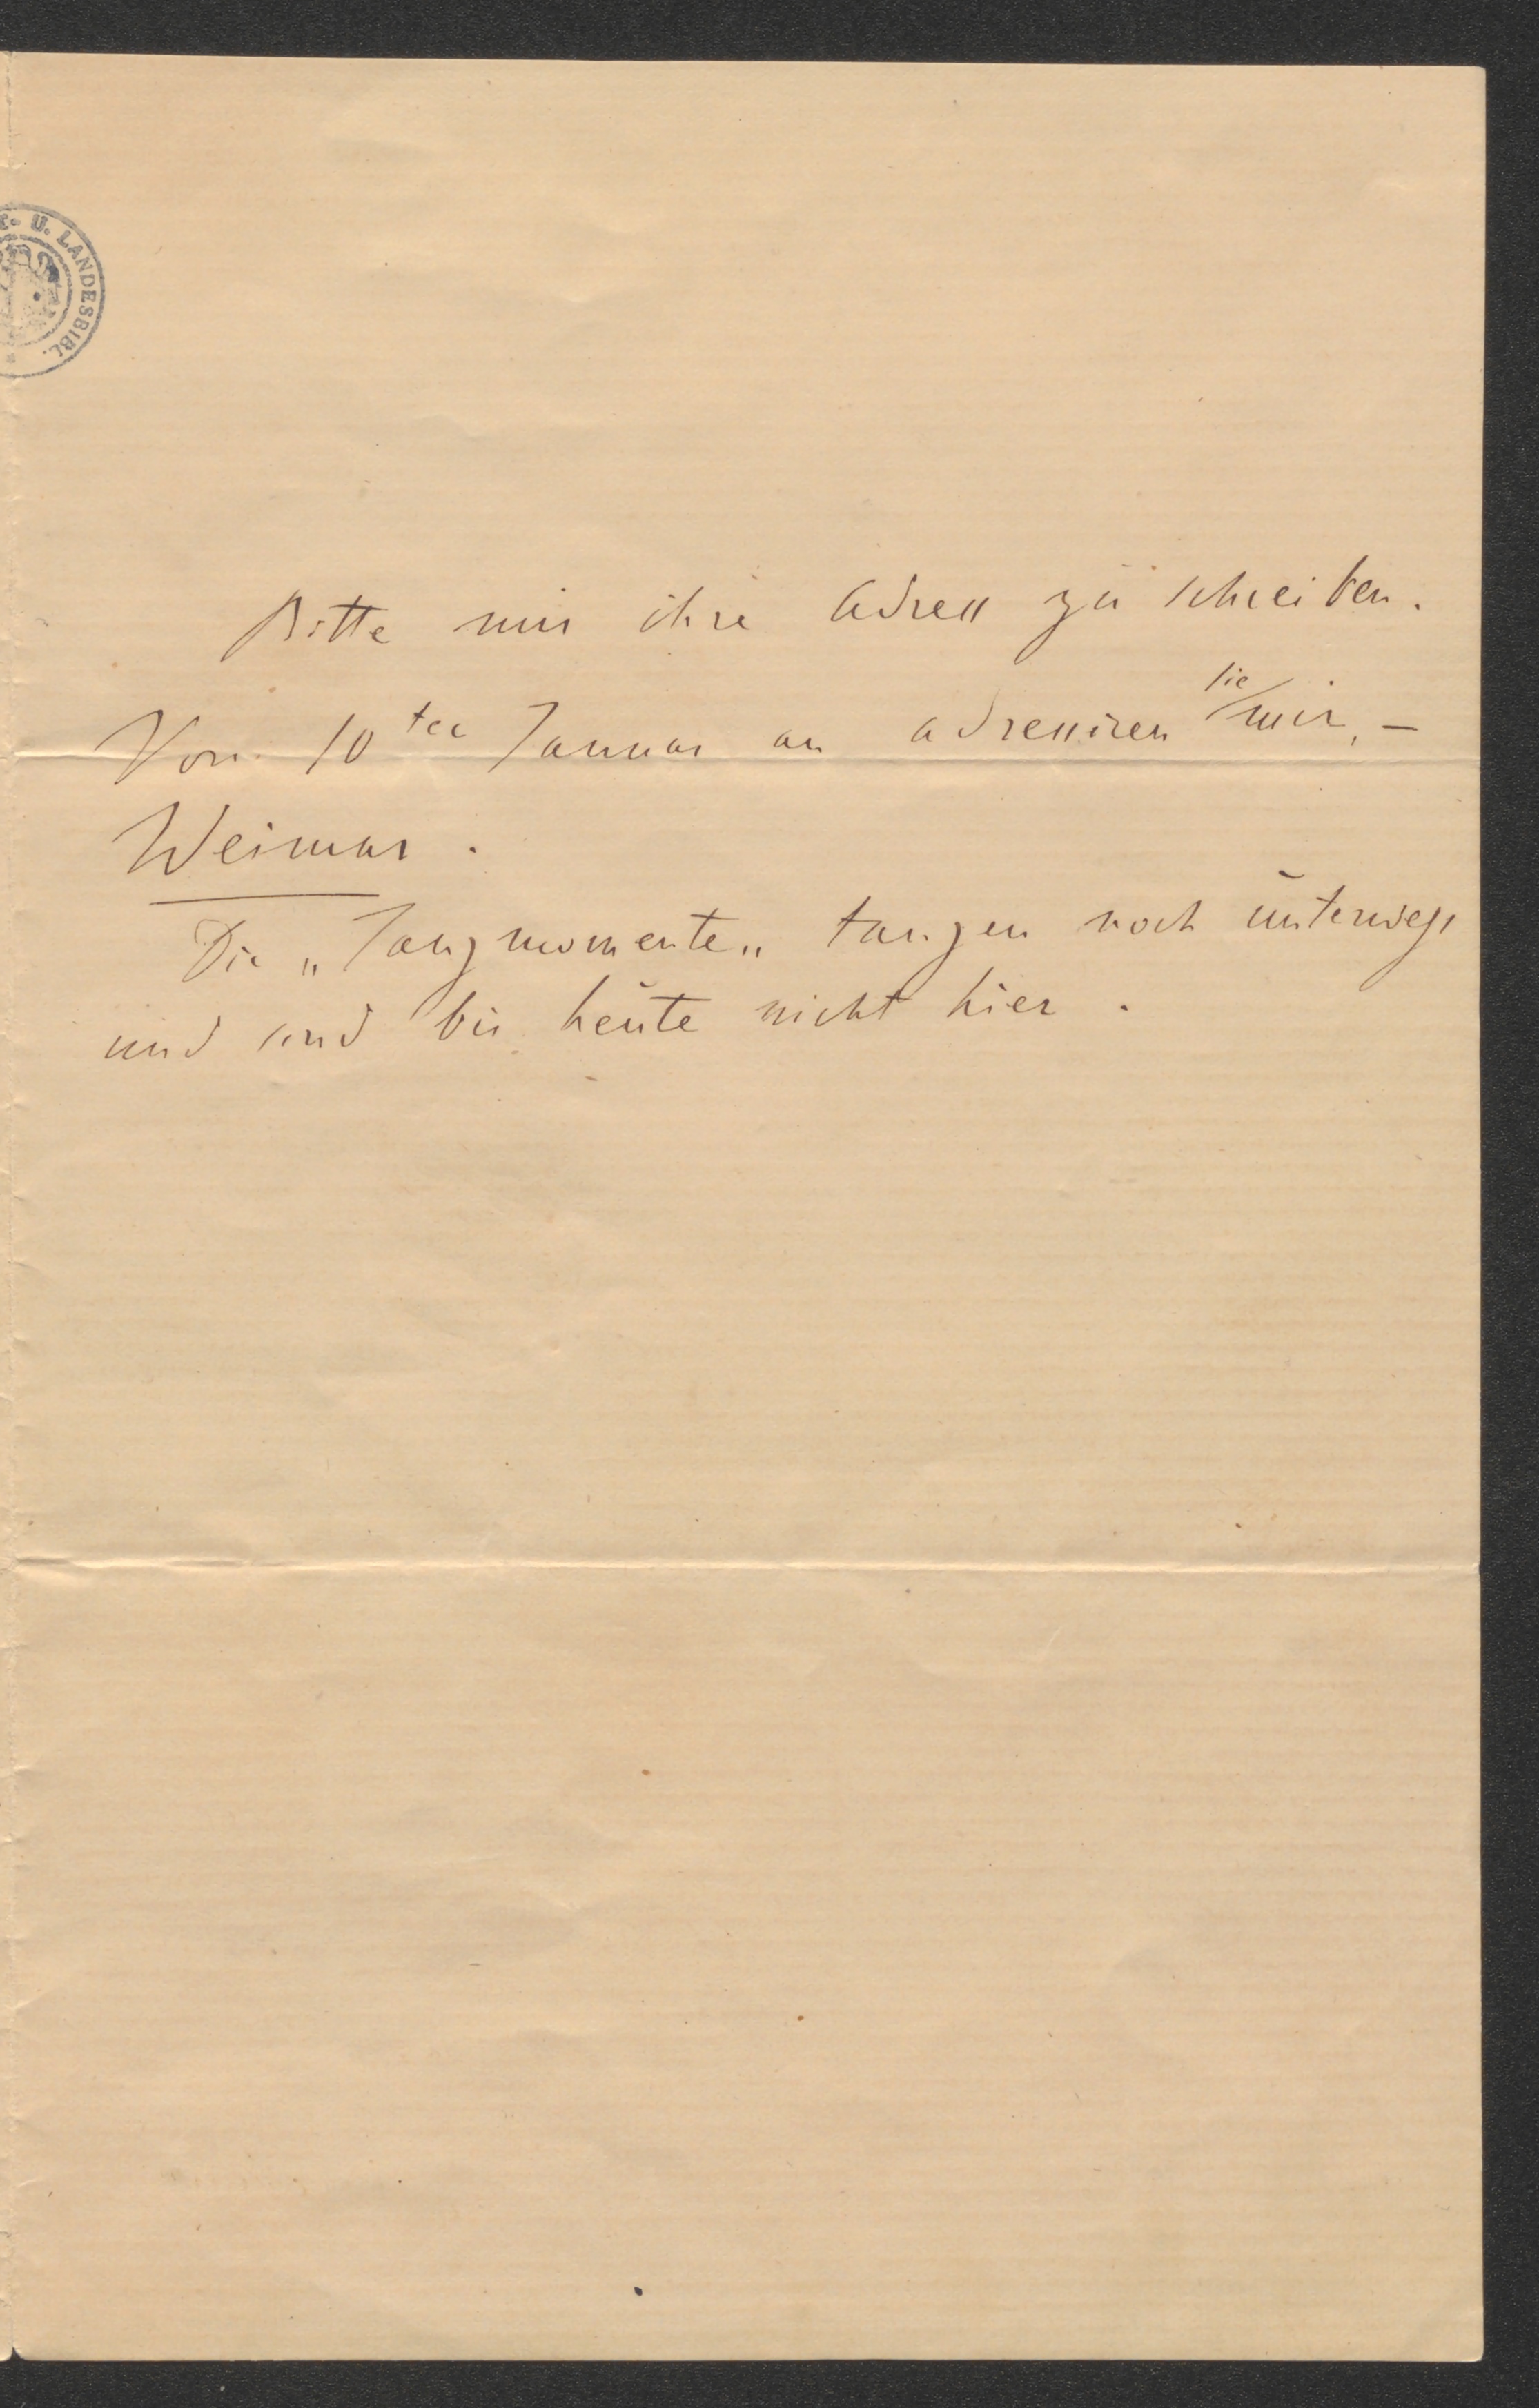 U. LANDESBIBL.
Bitte mir ihre Adress zu schreiben.
Vom 10ten Januar an adressiren sie mir, –
Weimar.
Die „Tanzmomente„ tanzen noch unterwegs
und sind bis heute nicht hier.